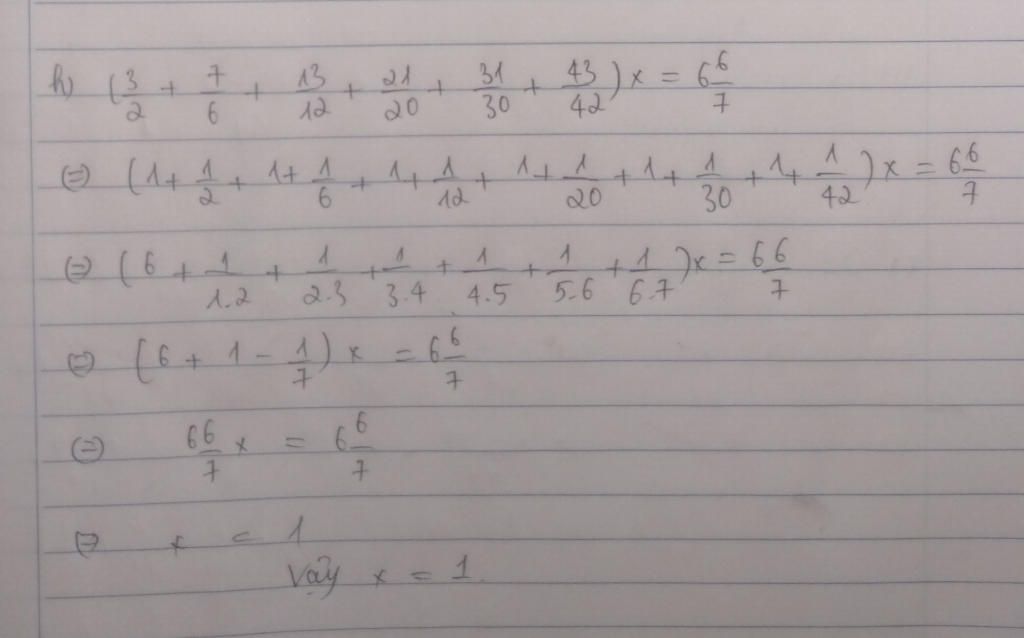 h) (3/2 + 7/6 + 13/12 + 21/20 + 31/30 + 43/42) x = 6 6/7
(=) (1 + 1/2 + 1 + 1/6 + 1 + 1/12 + 1 + 1/20 + 1 + 1/30 + 1 + 1/42) x = 6 6/7
(=) (6 + 1/1.2 + 1/2.3 + 1/3.4 + 1/4.5 + 1/5.6 + 1/6.7) x = 6 6/7
(=) (6 + 1 - 1/7) x = 6 6/7
(=) 6 6/7 x = 6 6/7
(=) x = 1
Vậy x = 1.